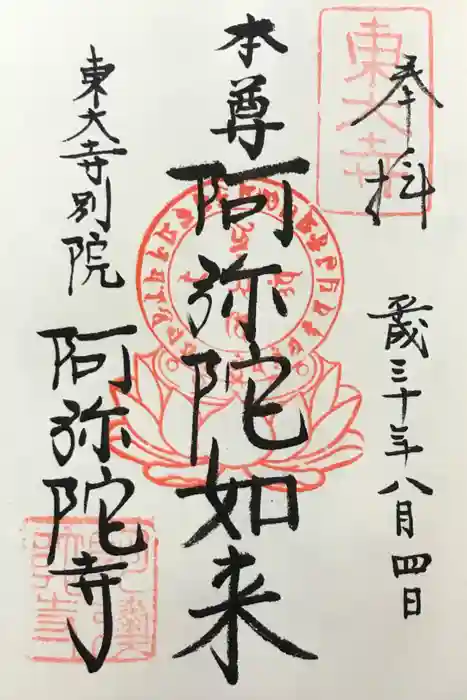 奉拝
東大寺
平成三十年八月四日
本尊 阿弥陀如来
東大寺別院
阿弥陀寺